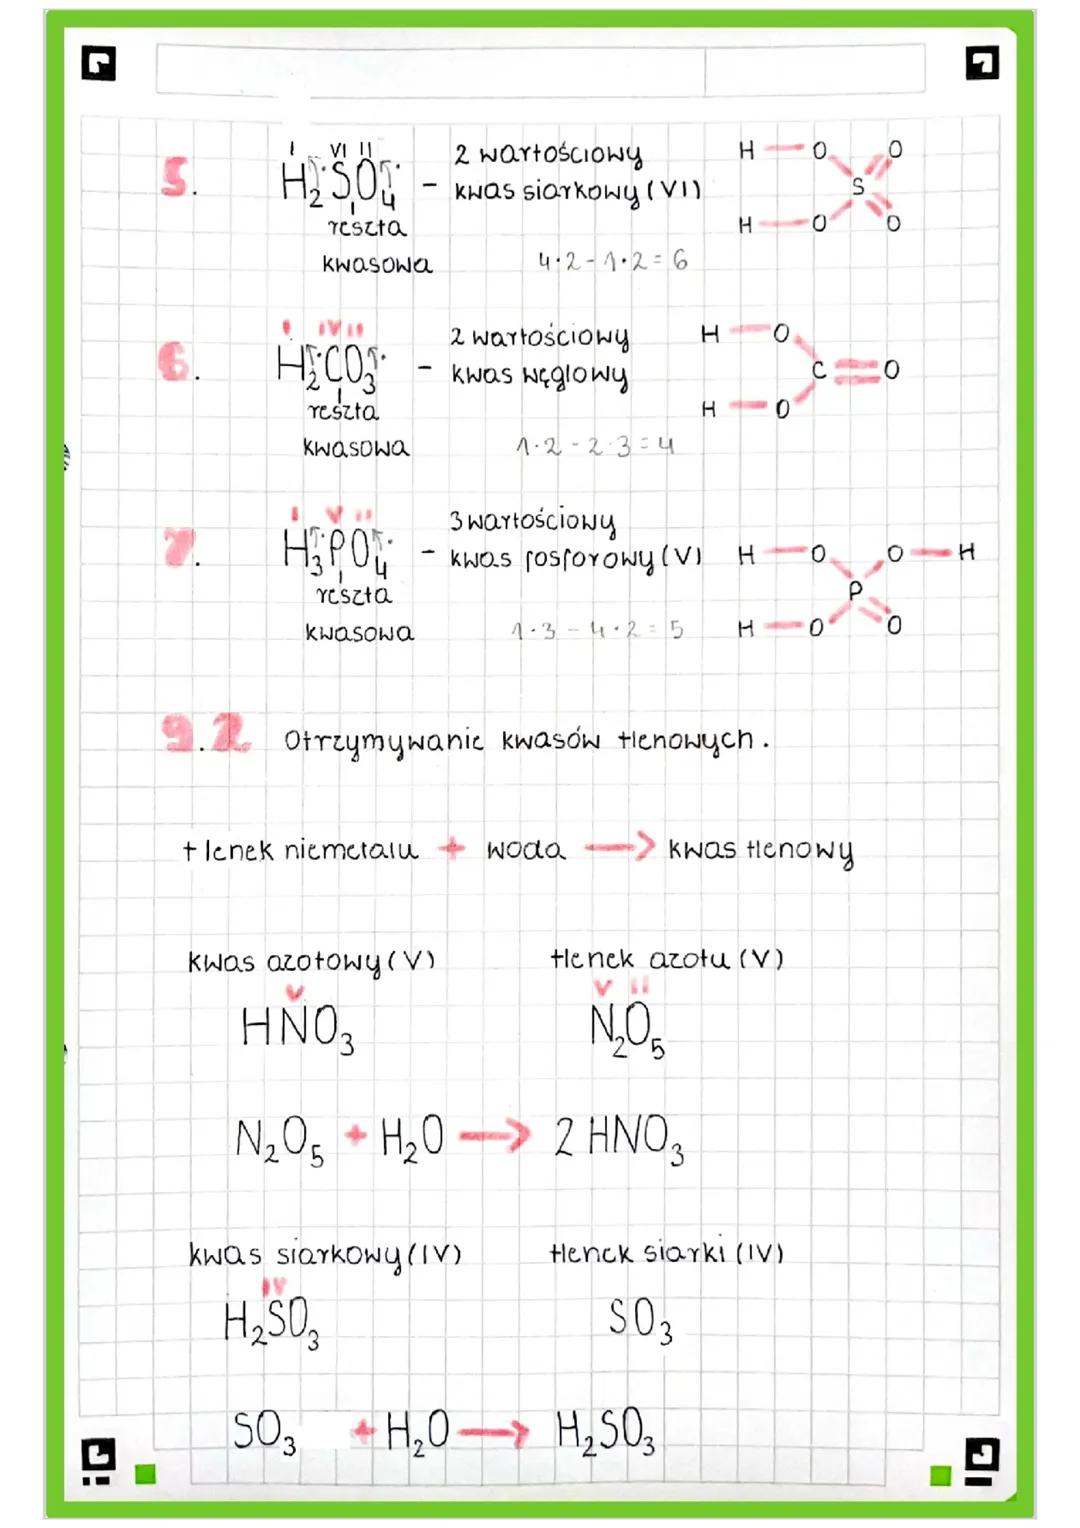 5. I VI II
H₂SO₄ - 2 wartościowy
kwas siarkowy (VI)
reszta
kwasowa
4·2-1·2=6
H O O
S
H O O
6. I IV II
H₂CO₃ - 2 wartościowy
kwas węglowy
reszta
kwasowa
1·2-2·3=4
H O
C O
H O
7. I V II
H₃PO₄ - 3 wartościowy
kwas fosforowy (V)
reszta
kwasowa
1·3-4·2=5
H O O H
P
H O O
9.2 Otrzymywanie kwasów tlenowych.
tlenek niemetalu + woda → kwas tlenowy
kwas azotowy (V) tlenek azotu (V)
V V II
HNO₃ N₂O₅
N₂O₅ + H₂O → 2 HNO₃
kwas siarkowy (IV) tlenek siarki (IV)
IV
H₂SO₃ SO₃
SO₃ + H₂O → H₂SO₃